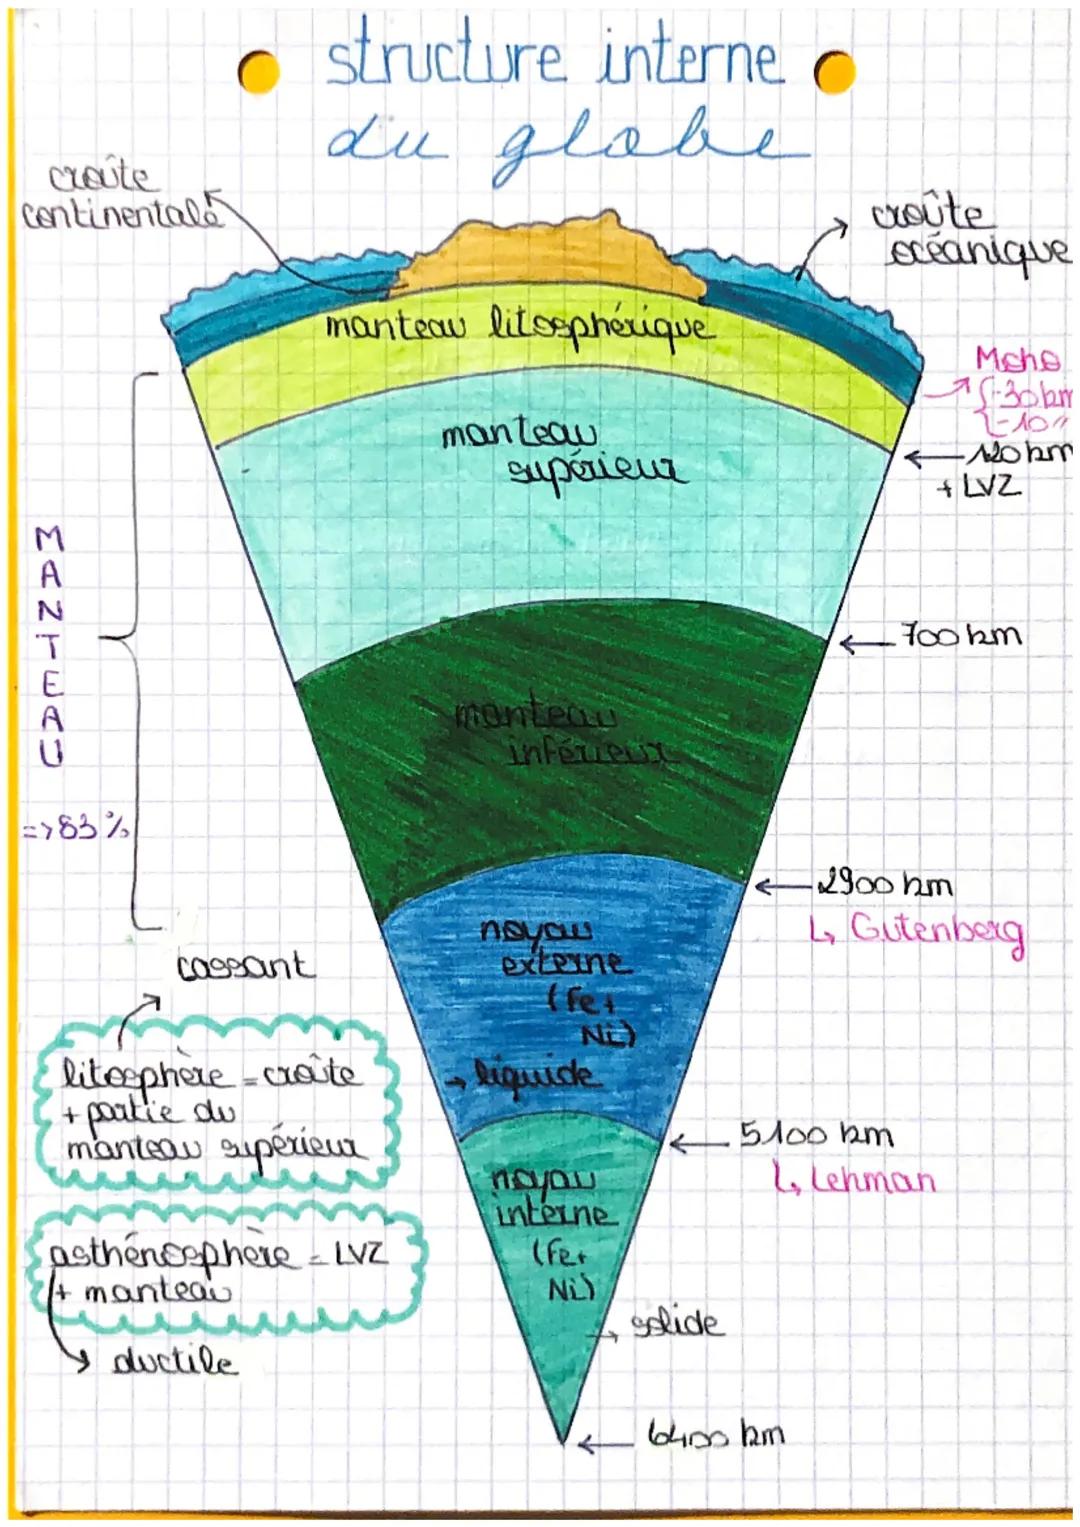 structure interne
du globe
croûte
continentale
croûte
océanique
manteau litosphérique
Moho
-30 km
-10 "
120 km
+ LVZ
manteau
supérieur
MANTEAU
=> 83 %
700 km
manteau
inférieur
2900 km
↳ Gutenberg
noyau
externe
(Fe+
Ni)
→ liquide
cassant
litosphère = croûte
+ partie du
manteau supérieur
5100 km
↳ Lehman
noyau
interne
(Fe+
Ni)
→ solide
asthénosphère = LVZ
+ manteau
→ ductile
6400 km